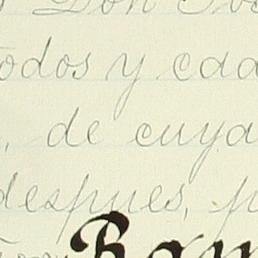 y Don
todos y cada
, de cuya
despues, p
Ram